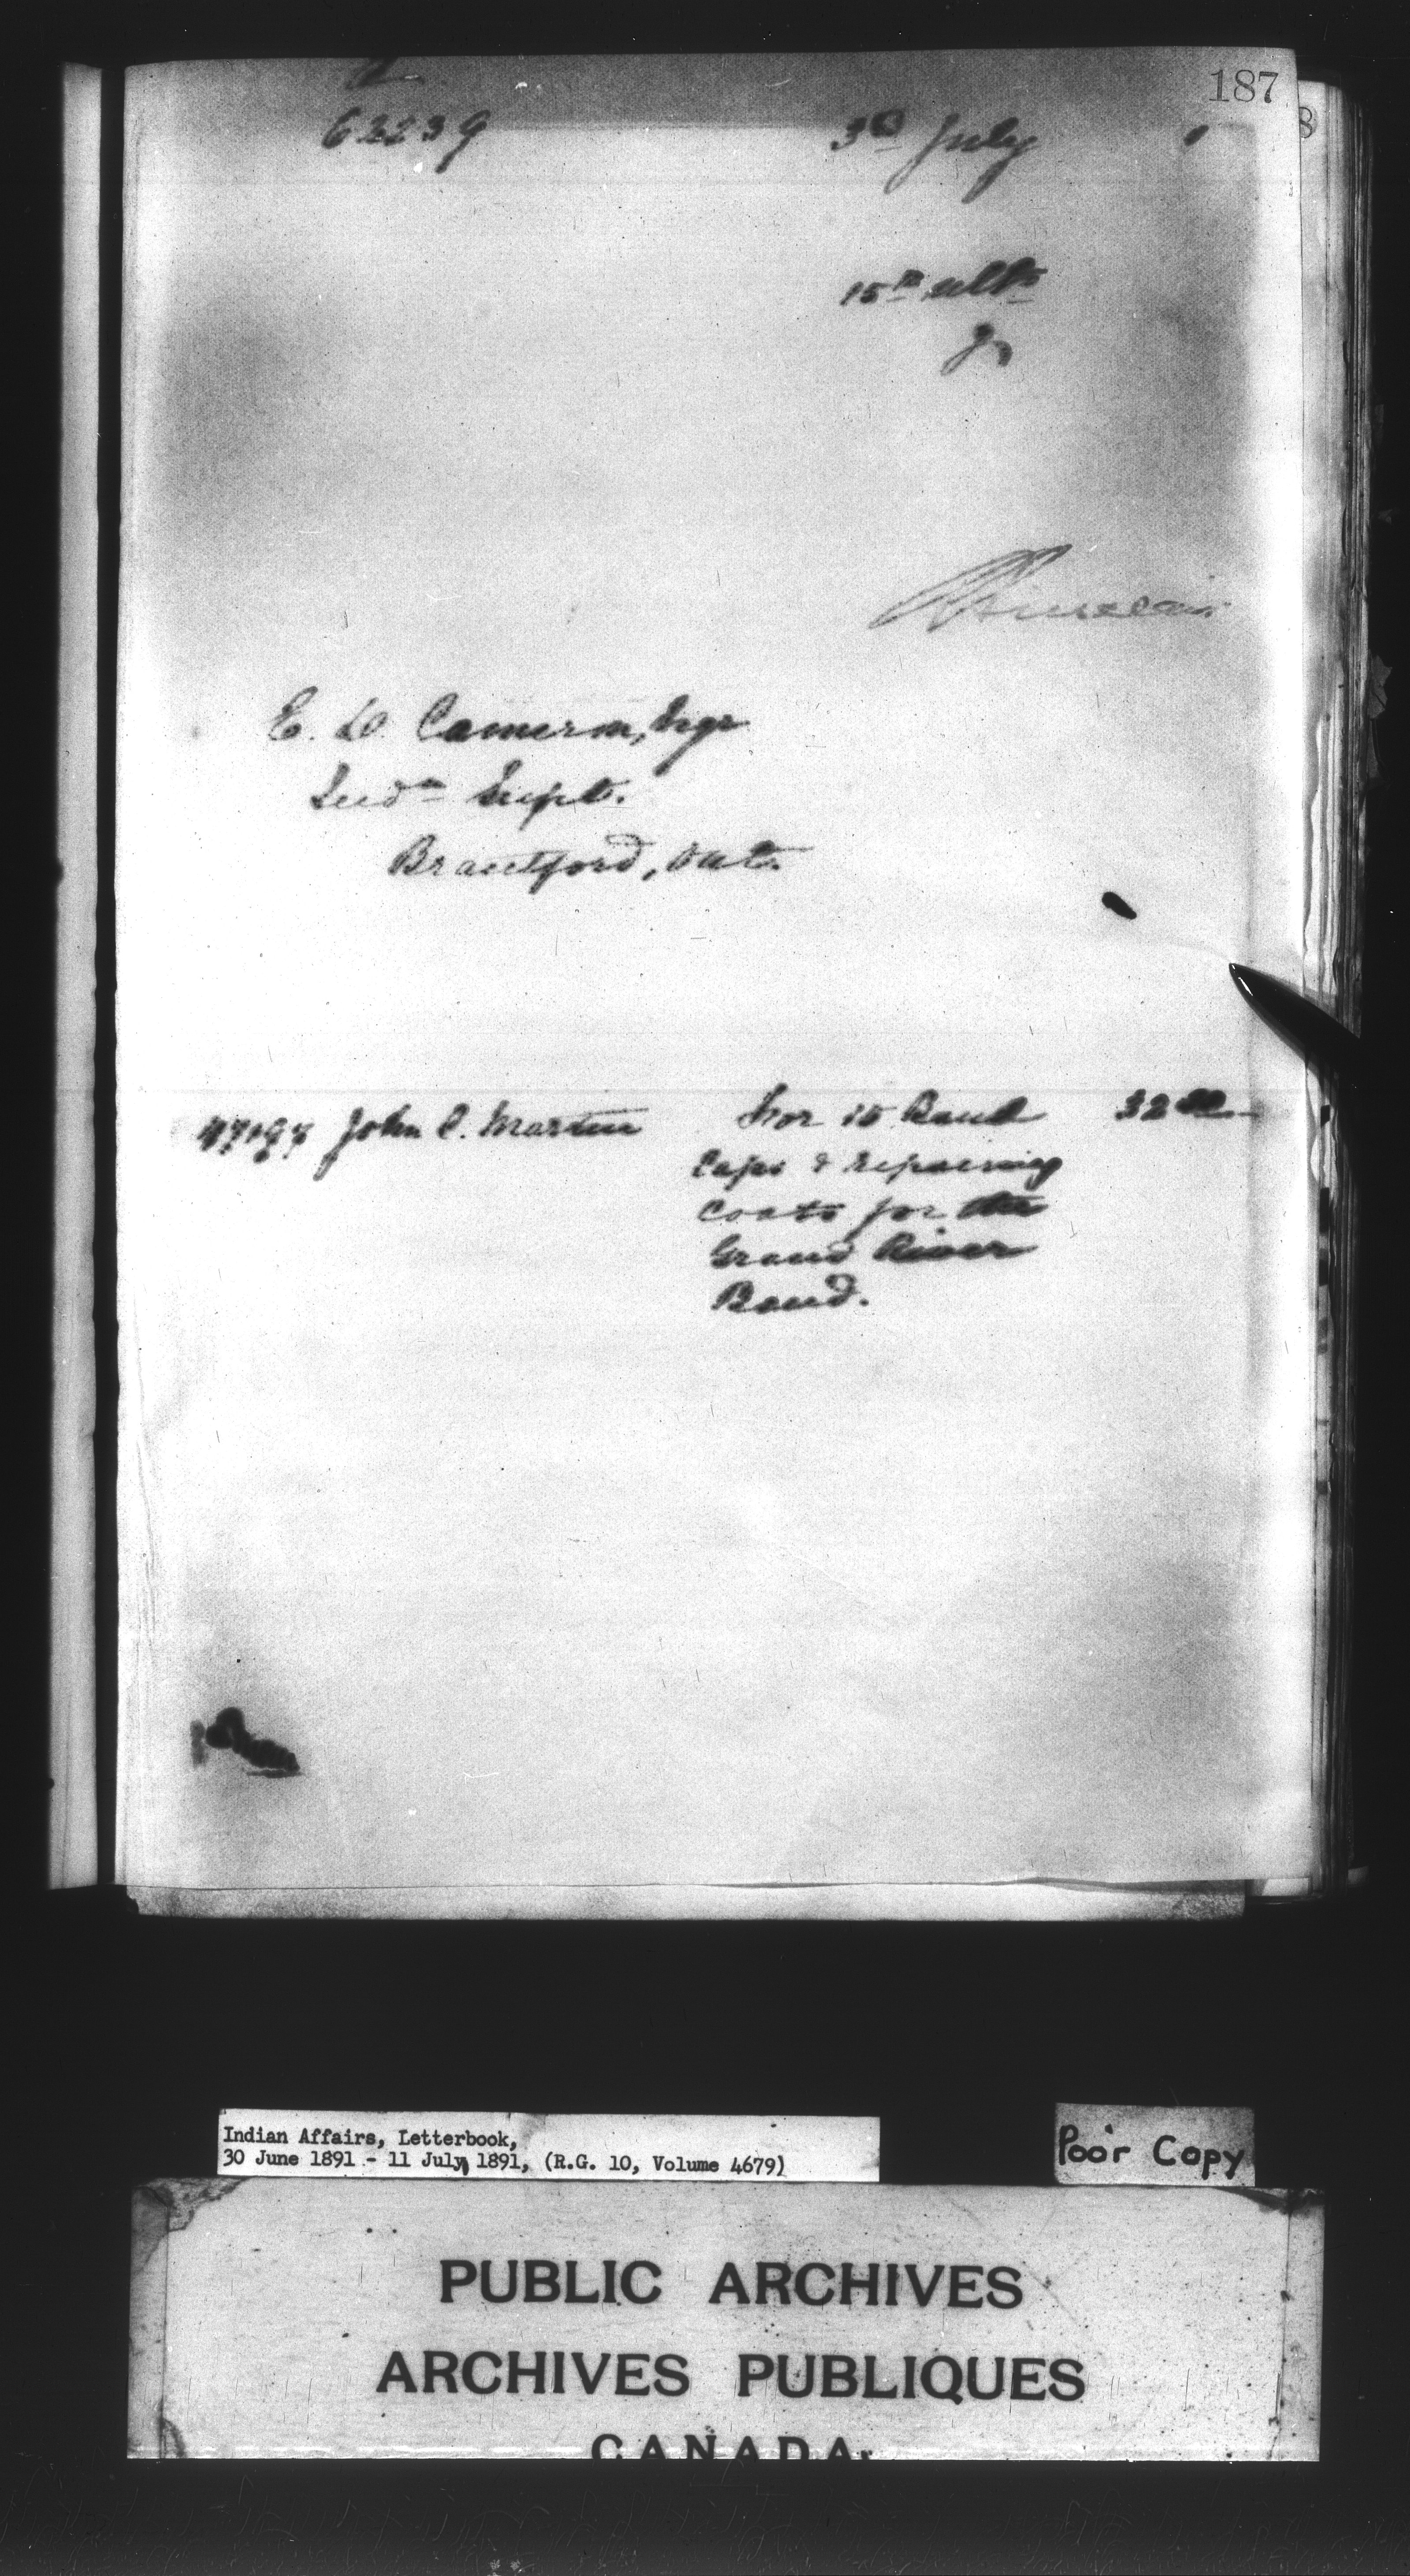 187
62239 3rd July 1
15th ulto
E. D. Cameron, Esqr
Indn Supt.
Brantford, Ont.
John C. Martin For 15 Band 32 00
Caps & repairing
Coats for the
Grand River
Band.
Indian Affairs, Letterbook,
30 June 1891 - 11 July 1891, (R.G. 10, Volume 4679)
Poor Copy
PUBLIC ARCHIVES
ARCHIVES PUBLIQUES
CANADA